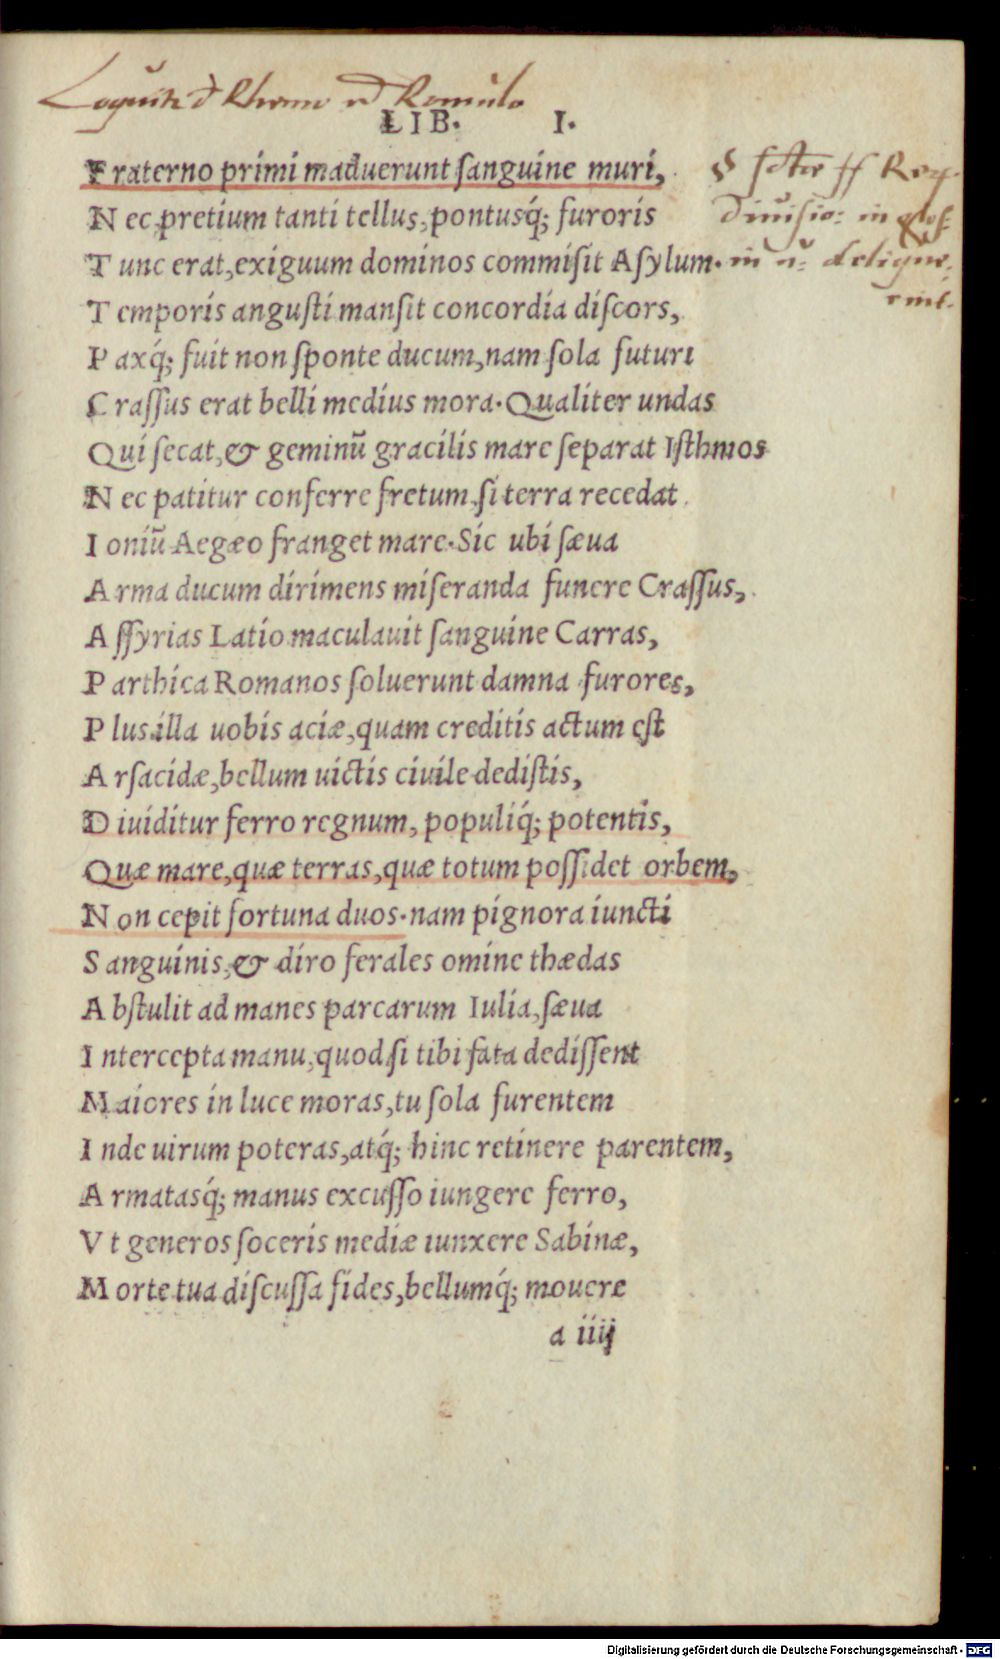 Loquitur de Rhemo et Romulo
LIB. I.
Fraterno primi maduerunt ſanguine muri,
Nec pretium tanti tellus, pontusq́; furoris
Tunc erat, exiguum dominos commiſit Aſylum.
Temporis anguſti manſit concordia diſcors,
Paxq́; fuit non ſponte ducum, nam ſola futuri
Craſſus erat belli medius mora. Qualiter undas
Qui ſecat, & geminū gracilis mare ſeparat Iſthmos
Nec patitur conferre fretum, ſi terra recedat
Ioniū Aegæo franget mare. Sic ubi ſæua
Arma ducum dirimens miſeranda funere Craſſus,
Aſſyrias Latio maculauit ſanguine Carras,
Parthica Romanos ſoluerunt damna furores,
Plus illa uobis aciæ, quam creditis actum eſt
Arſacidæ, bellum uictis ciuile dediſtis,
Diuiditur ferro regnum, populiq́; potentis,
Quæ mare, quæ terras, quæ totum poſſidet orbem,
Non cepit fortuna duos. nam pignora iuncti
Sanguinis, & diro ferales omine thædas
Abſtulit ad manes parcarum Iulia, ſæua
Intercepta manu, quod ſi tibi fata dediſſent
Maiores in luce moras, tu ſola furentem
Inde uirum poteras, atq́; hinc retinere parentem,
Armatasq́; manus excuſſo iungere ferro,
Vt generos ſoceris mediæ iunxere Sabinæ,
Morte tua diſcuſſa fides, bellumq́; mouere
a iiij
Digitalisierung gefördert durch die Deutsche Forschungsgemeinschaft - DFG